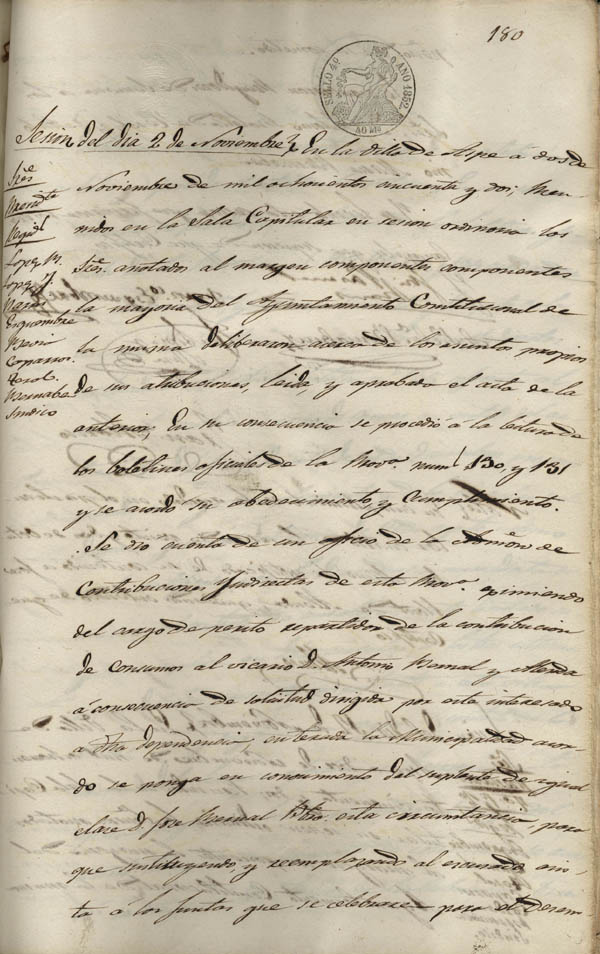 180
SELLO 4º AÑO 1852.
40 Ms
Sesion del dia 2 de Noviembre En la Villa de Aspe á dos de
Noviembre de mil ochocientos cincuenta y dos; Reu-
nidos en la Sala Capitular en sesion ordinaria los
Sres. anotados al margen componentes componentes
la mayoria del Ayuntamiento Constitucional de
la misma deliberaron acerca de los asuntos propios
de sus atribuciones, leida, y aprobada el acta de la
anterior, En su consecuencia se procedió a la lectura de
los boletines oficiales de la Prova. num.s 130, y 131
y se acordó su obedecimiento y cumplimiento.
Se dio cuenta de un oficio de la Admon de
Contribuciones Yndirectas de esta Prova. eximiendo
del cargo de perito repartidor de la contribucion
de consumos al vicario D. Antonio Bernal y Alenda
á consecuencia de solicitud dirigida por este interesado
a dha dependencia, enterada la Municipalidad acor-
do se ponga en conocimiento del suplente de igual
clase D. Jose Bernal Pbro. esta circunstancia, para
que sustituyendo, y reemplazando al escusado asis-
ta á las Juntas que se celebraren para el desem-
Sres
Presidte
Regidl
Lopez M.
Lopez J.
Erquembre
Pavia
Caparros
Terol
Bernabe
Sindico